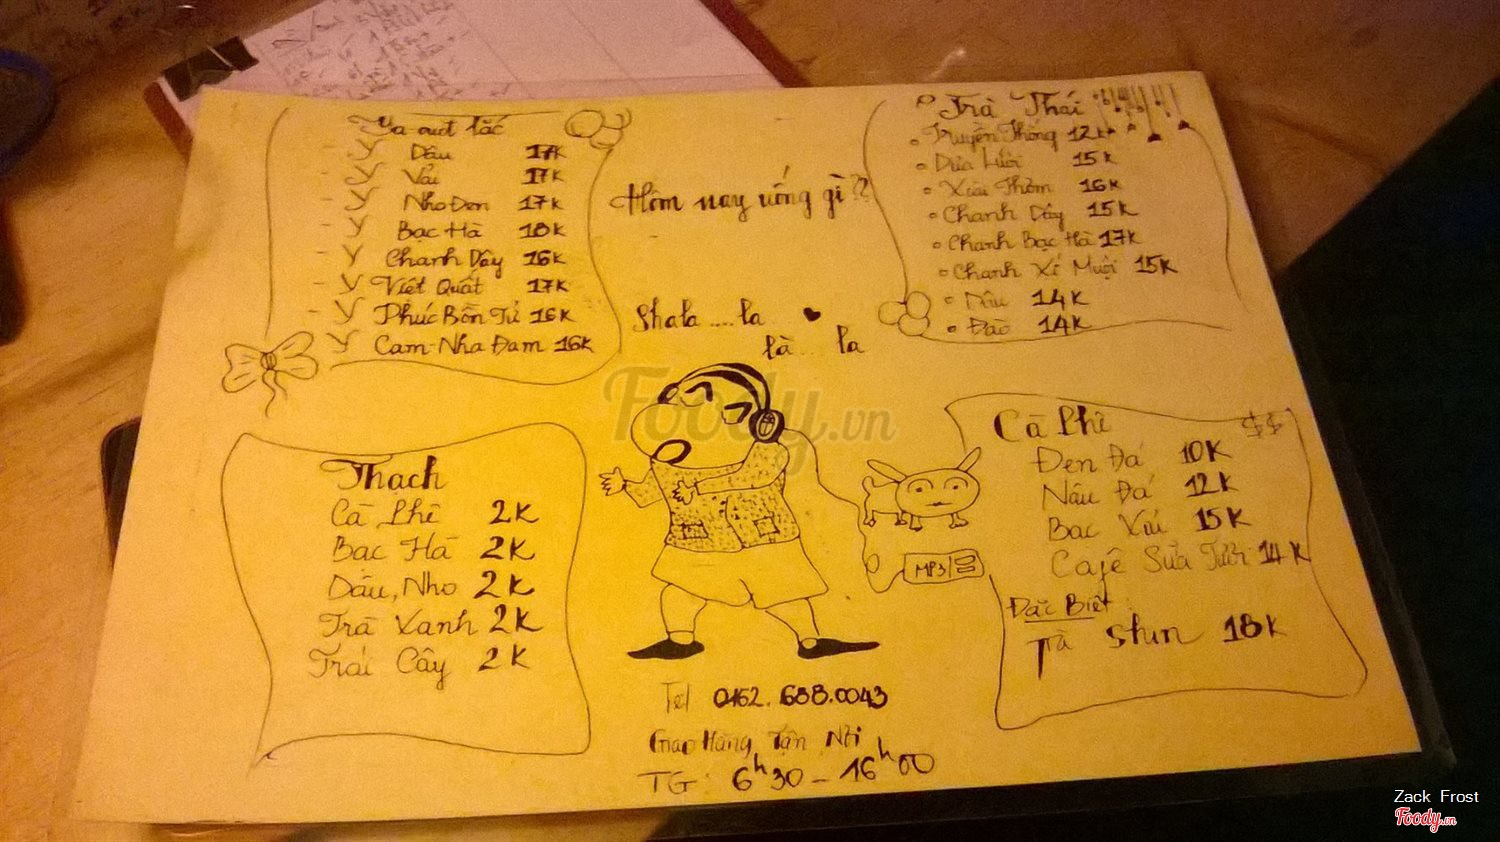 Ya-ourt lắc
- Dâu 17K
- Vải 17K
- Nho Đen 17K
- Bạc Hà 18K
- Chanh Dây 16K
- Việt Quất 17K
- Phúc Bồn Tử 16K
- Cam-Nha Đam 16K
Hôm nay uống gì??
Shala....la
là...la
Trà Thái
Truyền Thống 12K
Dưa Lưới 15K
Xoài Thơm 16K
Chanh Dây 15K
Chanh Bạc Hà 17K
Chanh Xí Muội 15K
14K
Đào 14K
Thạch
Cà Phê 2K
Bạc Hà 2K
Dâu, Nho 2K
Trà Xanh 2K
Trái Cây 2K
Cà Phê $$
Đen Đá 10K
Nâu Đá 12K
Bạc Xỉu 15K
Cafê Sữa Tươi 14K
Đặc Biệt:
Trà Stun 18K
MP3
Tel 0162.688.0043
Giao Hàng Tận Nơi
TG: 6h30 - 16h00
Foody.vn
Zack Frost
Foody.vn